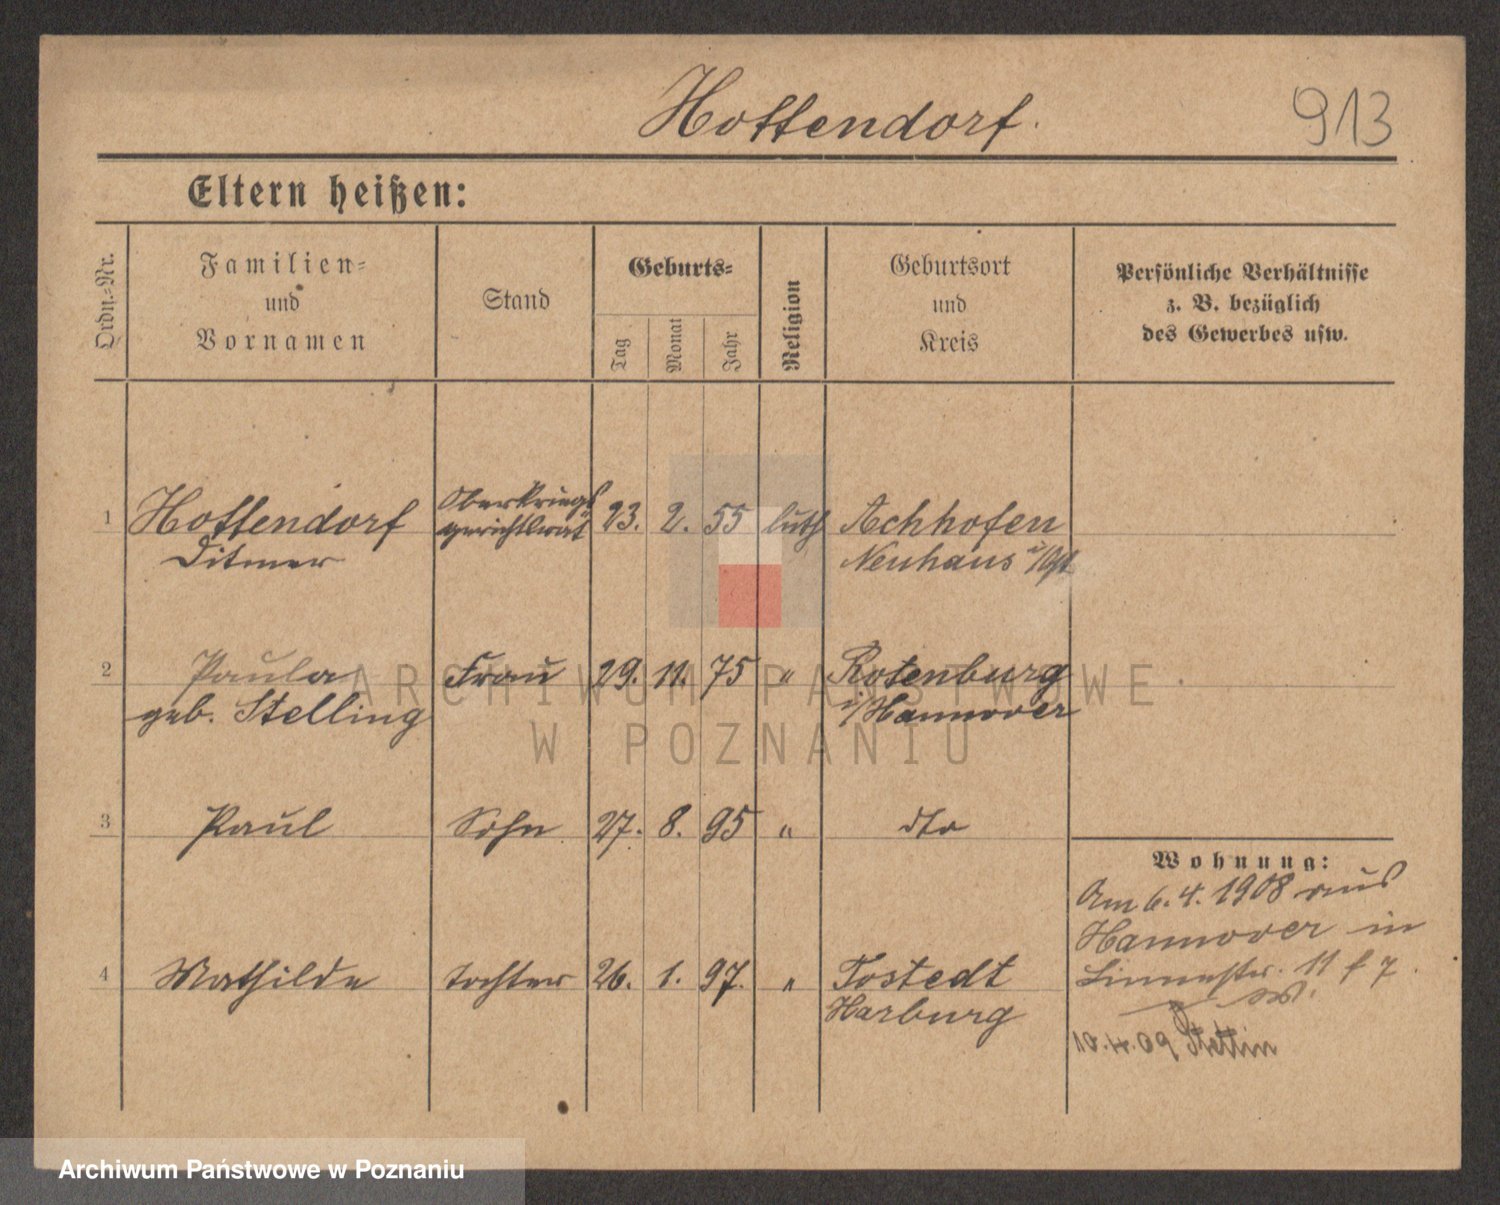 Hottendorf.
913
Eltern heißen:
Ordn.-Nr.
Familien-
und
Vornamen
Stand
Geburts-
Tag
Monat
Jahr
Religion
Geburtsort
und
Kreis
Persönliche Verhältnisse
z. B. bezüglich
des Gewerbes usw.
1 Hottendorf Oberkriegs 23. 2. 55 luth Achhöfen
Ditmer gerichtsrat Neuhaus
2 Paula Frau 29. 11. 75 " Rotenburg
geb. Stelling i/Hannover
3 Paul Sohn 27. 8. 95 " dto
Wohnung:
Am 6. 4. 1908 aus
Hannover in
4 Mathilde Tochter 26. 1. 97. " Tostedt
Harburg
11 7.
10.4.09 Stettin
ARCHIWUM PAŃSTWOWE
W POZNANIU
Archiwum Państwowe w Poznaniu